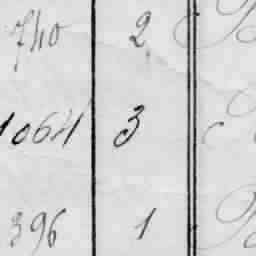 740 2
1064 3
396 1